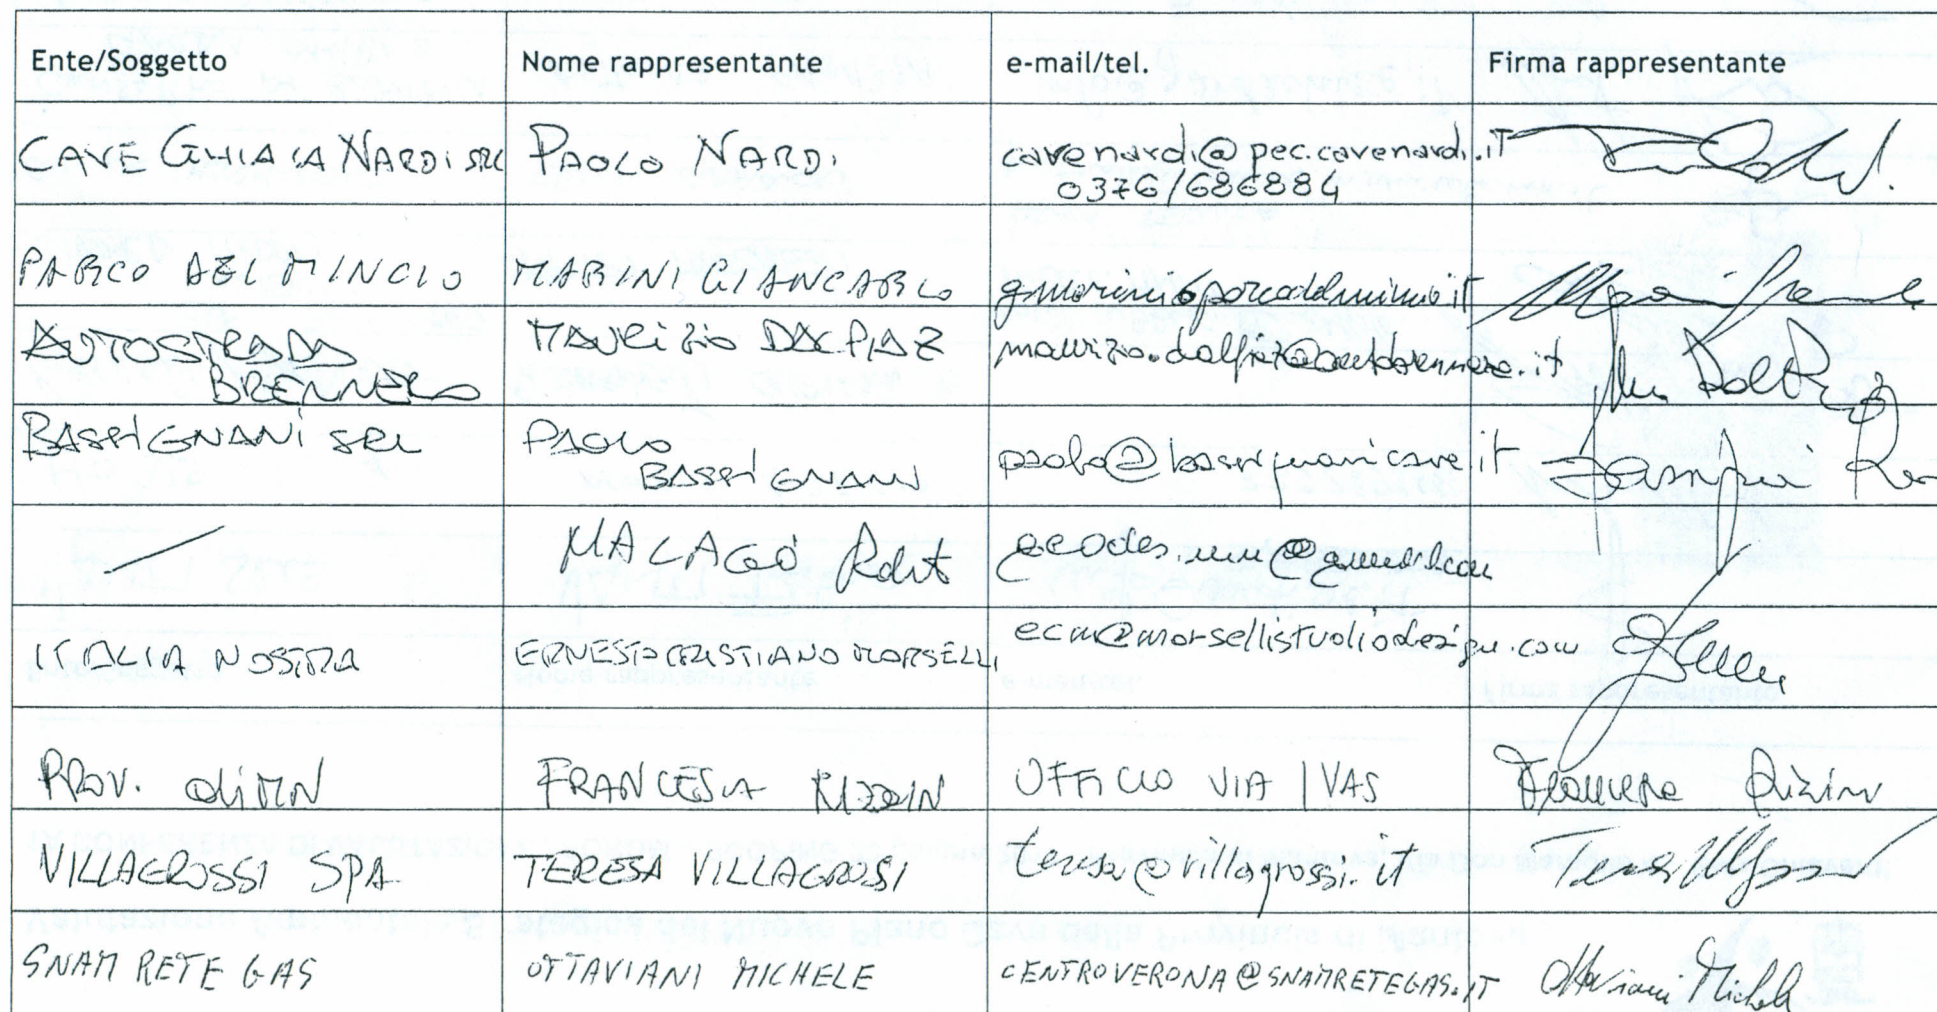 Ente/Soggetto Nome rappresentante e-mail/tel. Firma rappresentante
CAVE GHIAIA NARDI SRL PAOLO NARDI cavenardi@pec.cavenardi.it
0376/686884
PARCO DEL MINCIO MARINI GIANCARLO
AUTOSTRADA MAURIZIO DALPIAZ
BRENNERO
BASSIGNANI SRL PAOLO
BASSIGNANI paolo@bassignanicave.it
MALAGÒ
ITALIA NOSTRA ERNESTO CRISTIANO MORSELLI ecm@morsellistudiodesign.com
PROV. di MN FRANCESCA RIZZINI UFFICIO VIA / VAS Francesca Rizzini
VILLAGROSSI SPA TERESA VILLAGROSSI teresa@villagrossi.it
SNAM RETE GAS OTTAVIANI MICHELE CENTROVERONA@SNAMRETEGAS.IT Ottaviani Michele